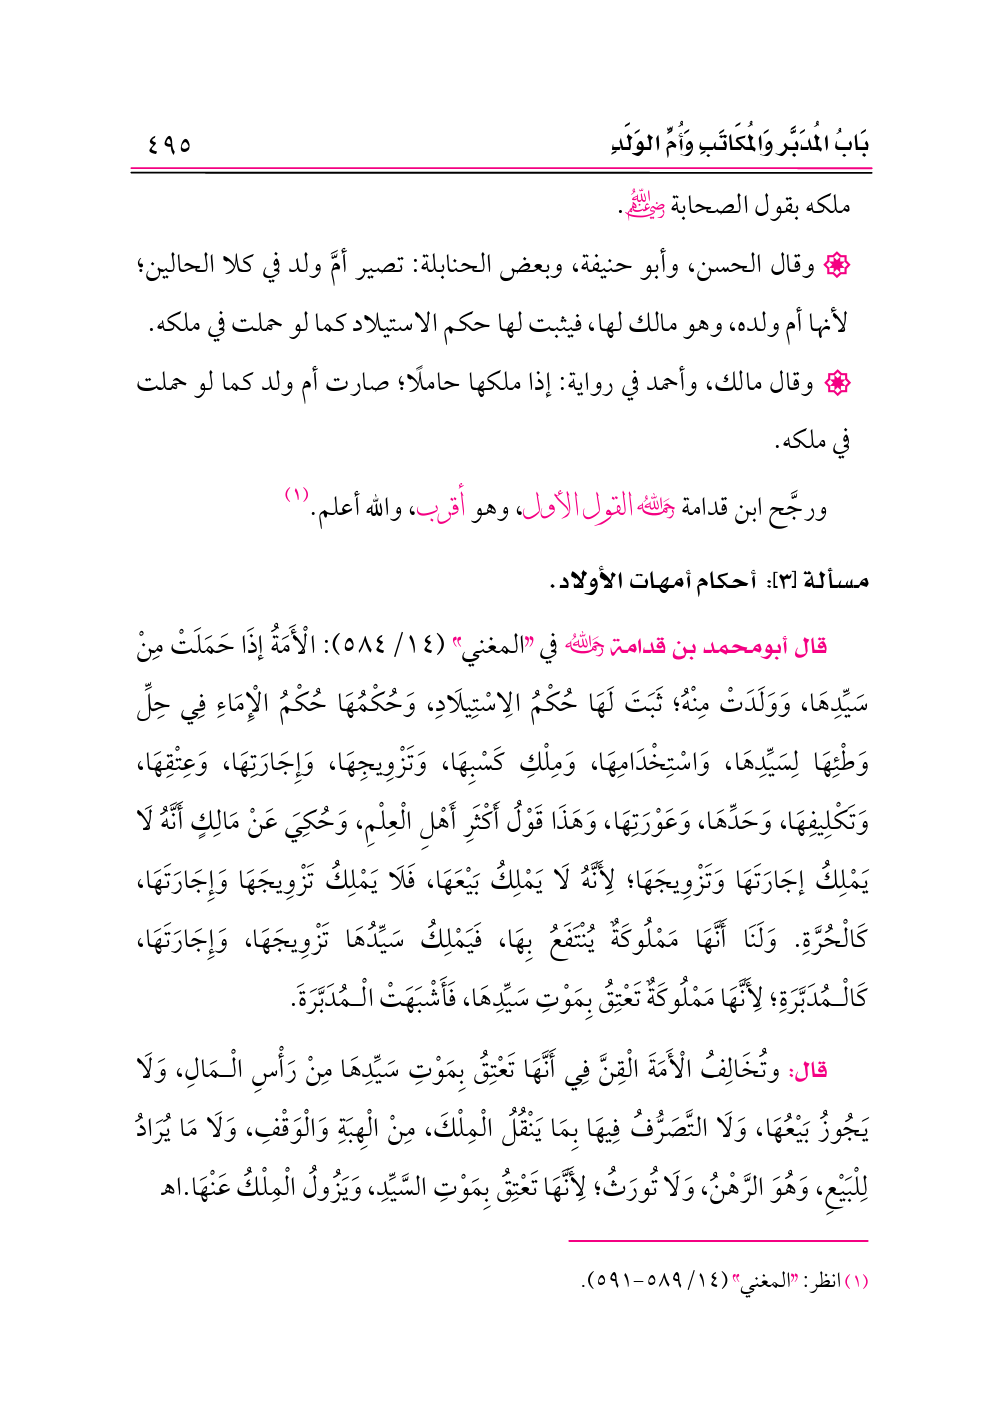 بَابُ الُمدَبَّر وَالُمكَاتَبِ وَأُمِّ الوَلَدِ ٤٩٥
ملكه بقول الصحابة ﵃.
۞ وقال الحسن، وأبو حنيفة، وبعض الحنابلة: تصير أمَّ ولد في كلا الحالين؛
لأنها أم ولده، وهو مالك لها، فيثبت لها حكم الاستيلاد كما لو حملت في ملكه.
۞ وقال مالك، وأحمد في رواية: إذا ملكها حاملًا؛ صارت أم ولد كما لو حملت
في ملكه.
ورجَّح ابن قدامة ﵀ القول الأول، وهو أقرب، والله أعلم.(١)
مسألة [٣]: أحكام أمهات الأولاد.
قال أبومحمد بن قدامة ﵀ في "المغني" (١٤/ ٥٨٤): الْأَمَةُ إذَا حَمَلَتْ مِنْ
سَيِّدِهَا، وَوَلَدَتْ مِنْهُ؛ ثَبَتَ لَهَا حُكْمُ الِاسْتِيلَادِ، وَحُكْمُهَا حُكْمُ الْإِمَاءِ فِي حِلِّ
وَطْئِهَا لِسَيِّدِهَا، وَاسْتِخْدَامِهَا، وَمِلْكِ كَسْبِهَا، وَتَزْوِيجِهَا، وَإِجَارَتِهَا، وَعِتْقِهَا،
وَتَكْلِيفِهَا، وَحَدِّهَا، وَعَوْرَتِهَا، وَهَذَا قَوْلُ أَكْثَرِ أَهْلِ الْعِلْمِ، وَحُكِيَ عَنْ مَالِكٍ أَنَّهُ لَا
يَمْلِكُ إجَارَتَهَا وَتَزْوِيجَهَا؛ لِأَنَّهُ لَا يَمْلِكُ بَيْعَهَا، فَلَا يَمْلِكُ تَزْوِيجَهَا وَإِجَارَتَهَا،
كَالْحُرَّةِ. وَلَنَا أَنَّهَا مَمْلُوكَةٌ يُنْتَفَعُ بِهَا، فَيَمْلِكُ سَيِّدُهَا تَزْوِيجَهَا، وَإِجَارَتَهَا،
كَالْـمُدَبَّرَةِ؛ لِأَنَّهَا مَمْلُوكَةٌ تَعْتِقُ بِمَوْتِ سَيِّدِهَا، فَأَشْبَهَتْ الْـمُدَبَّرَةَ.
قال: وتُخَالِفُ الْأَمَةَ الْقِنَّ فِي أَنَّهَا تَعْتِقُ بِمَوْتِ سَيِّدِهَا مِنْ رَأْسِ الْـمَالِ، وَلَا
يَجُوزُ بَيْعُهَا، وَلَا التَّصَرُّفُ فِيهَا بِمَا يَنْقُلُ الْمِلْكَ، مِنْ الْهِبَةِ وَالْوَقْفِ، وَلَا مَا يُرَادُ
لِلْبَيْعِ، وَهُوَ الرَّهْنُ، وَلَا تُورَثُ؛ لِأَنَّهَا تَعْتِقُ بِمَوْتِ السَّيِّدِ، وَيَزُولُ الْمِلْكُ عَنْهَا.اهـ
(١) انظر: "المغني" (١٤/ ٥٨٩-٥٩١).